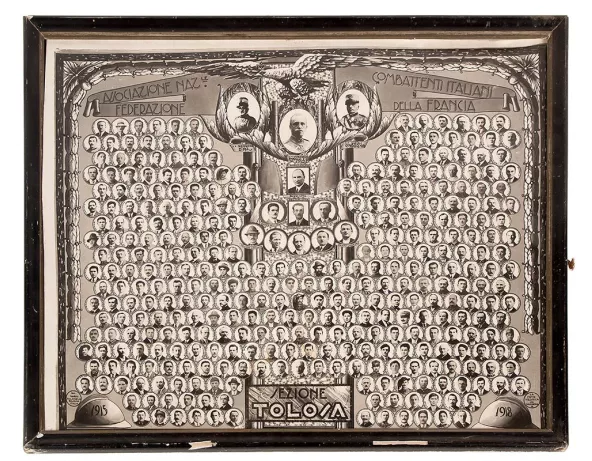 ASSOCIAZIONE NAZ.LE
FEDERAZIONE
COMBATTENTI ITALIANI
DELLA FRANCIA
SEZIONE
TOLOSA
1915
1918